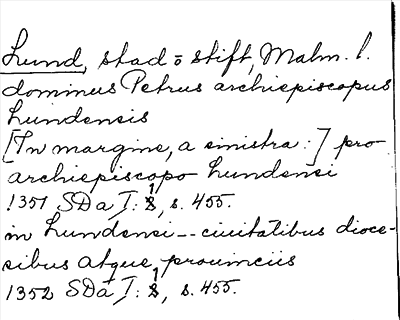 Lund, stad o stift, Malm. l.
dominus Petrus archiepiscopus
Lundensis
[In margine, a sinistra:] pro
archiepiscopo Lundensi
1351 SDa I: 1, s. 455.
in Lundensi -- ciuitatibus dioce-
sibus atque prouinciis
1352 SDa I: 1, s. 455.